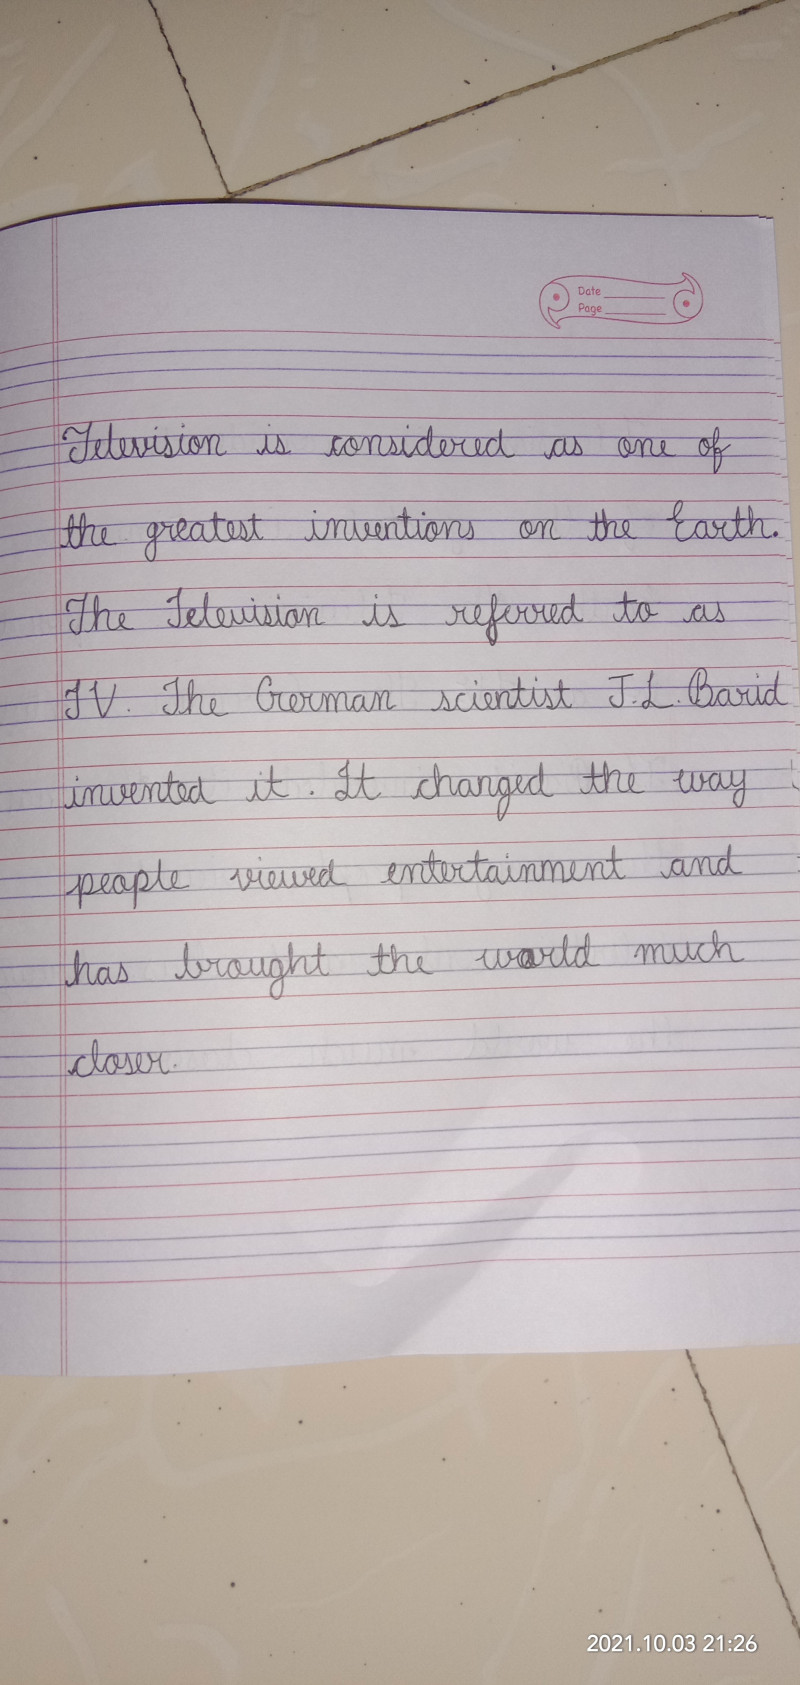 Date
Page
Television is considered as one of
the greatest inventions on the Earth.
The Television is referred to as
TV. The German scientist J.L. Barid
invented it. It changed the way
people viewed entertainment and
has brought the world much
closer.
2021.10.03 21:26